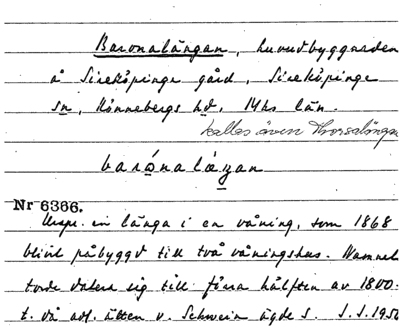 Baronalängan, huvudbyggnaden
å Sireköpinge gård, Sireköpinge
sn, Rönnebergs hd, M-hs län.
kallas även Thorsalängan
barónalǽŋan
Nr 6366.
Urspr. en länga i en våning, som 1868
blivit påbyggd till två våningshus. Namnet
torde datera sig till förra hälften av 1800-
t. då adl. ätten v. Schwerin ägde S. S.S. 1950